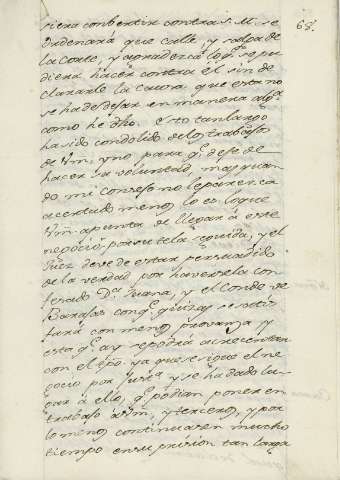 siera conbertir contra S. M. se
ordenará que calle y salga de
la Corte, y agradezca lo q.e se pu
diera hacer contra él sin de
clararle la causa que esta no
se ha de dejar en manera alg.a
como he dho. Esto tan largo
ha sido condolido de los trabajos
de Vm. y no para q.e deje de
hacer su voluntad, mas quan
do mi consejo no le parezca
acertado menos lo es lo que
Vm. apunta de llegar á este
negocio por su tela seguida, y el
Juez deve de estar persuadido
de la verdad por haversela con
fesado D.a Juana, y el Conde de
Barajas con q.e quizas se satis
fará con menos provanza y
esta q.e ay se podrá acrecentar
con el tpo. ya que se sigue el ne
gocio por Just.a y se ha dado lu
gar á ello, q.e podian poner en
trabajo a Vm. y terceros, y por
lo menos continuarsen mucho
tiempo en su prision tan larga
63.